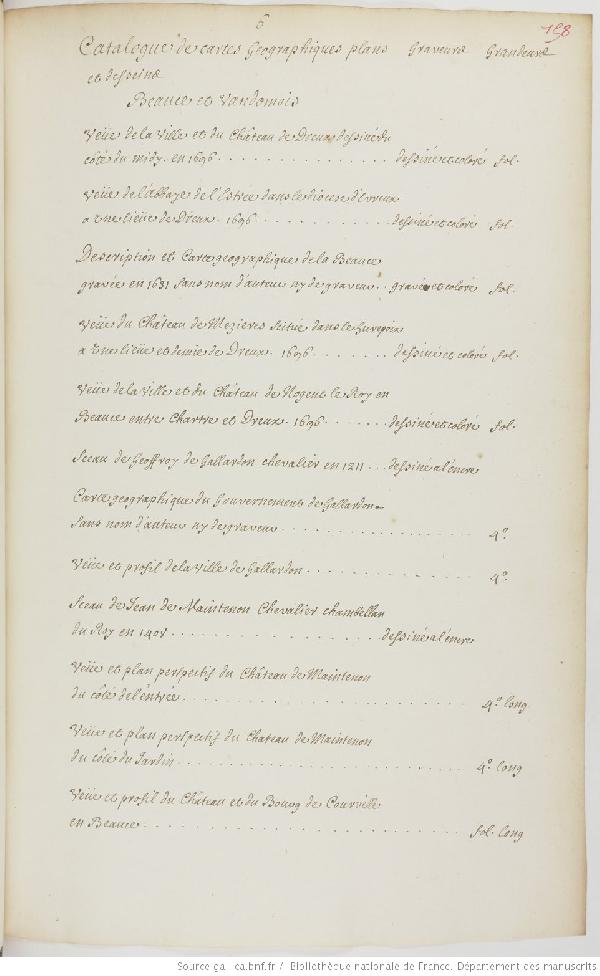 6
158
Catalogue de cartes Geographiques plans Graveurs Grandeurs
et desseins
Beauce et Vandomois
Veüe de la Ville et du Château de Dreux dessiné du
côté du midy. en 1696 . . . . . . . . . . . . . . . dessiné et coloré fol.
Veüe de l'abbaye de l'Estrée dans le diocese d'Evreux
a une lieüe de Dreux. 1696 . . . . . . . . . . . dessiné et coloré fol.
Description et Carte geographique de la Beauce
gravée en 1631 sans nom d'auteur ny de graveur . . gravée et coloré fol.
Veüe du Château de Mezieres scitué dans le hurepoix
a une lieüe et demie de Dreux. 1696 . . . . . . . dessiné et coloré fol.
Veüe de la Ville et du Château de Nogent le Roy en
Beauce entre Chartre et Dreux. 1696 . . . . . . . dessiné et coloré fol.
Sceau de Geoffroy de Gallardon chevalier en 1211 . . . dessiné a l'encre
Carte geographique du Gouvernement de Gallardon
sans nom d'auteur ny de graveur . . . . . . . . . . . . . . . . 4°
Veüe et profil de la Ville de Gallardon . . . . . . . . . . . . . 4°
Sceau de Jean de Maintenon Chevalier chambellan
du Roy en 1401 . . . . . . . . . . . . . . . . . dessiné a l'encre
Veüe et plan perspectif du Château de Maintenon
du côté de l'entrée . . . . . . . . . . . . . . . . . . . . . 4° long
Veüe et plan perspectif du Chateau de Maintenon
du côté du Jardin . . . . . . . . . . . . . . . . . . . . . 4° long
Veüe et profil du Château et du Bourg de Courville
en Beauce . . . . . . . . . . . . . . . . . . . . . . . . fol. long
Source gallica.bnf.fr / Bibliothèque nationale de France. Département des manuscrits